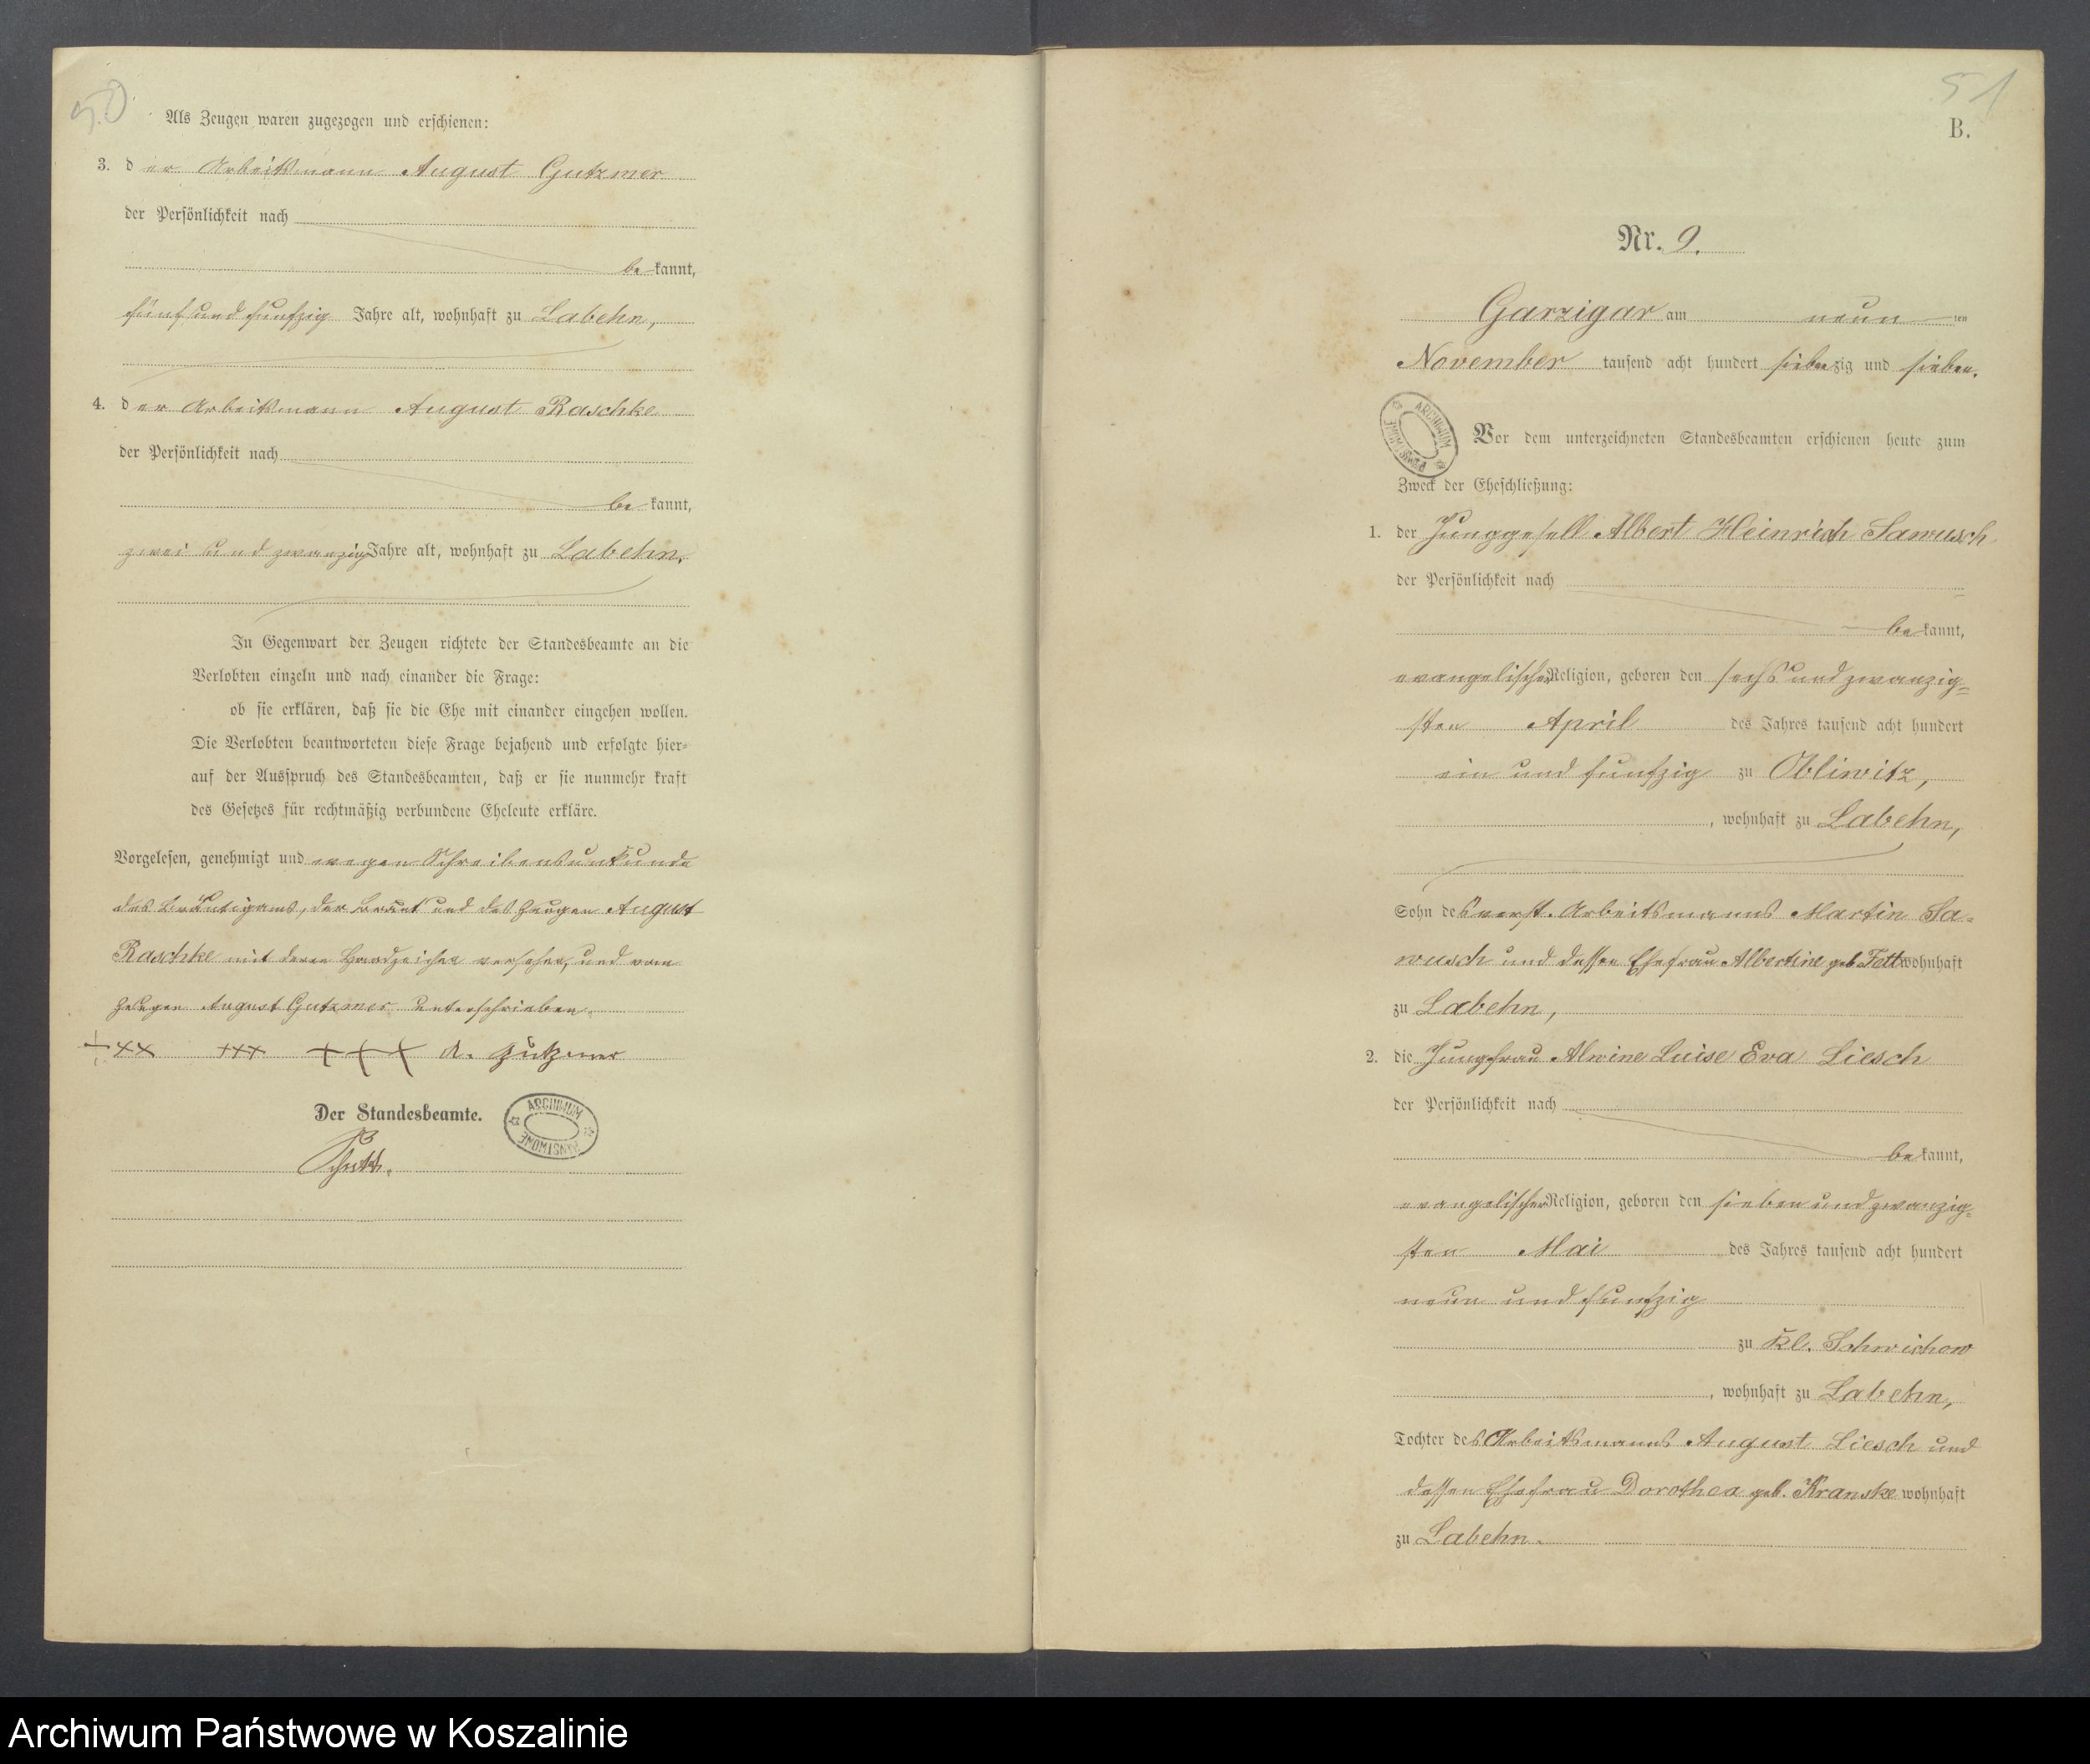 50
Als Zeugen waren zugezogen und erschienen:
3. der Arbeitsmann August Gutzmer
der Persönlichkeit nach
bekannt,
fünf und funfzig Jahre alt, wohnhaft zu Labehn,
4. der Arbeitsmann August Raschke
der Persönlichkeit nach
bekannt,
zwei und zwanzig Jahre alt, wohnhaft zu Labehn.
In Gegenwart der Zeugen richtete der Standesbeamte an die
Verlobten einzeln und nach einander die Frage:
ob sie erklären, daß sie die Ehe mit einander eingehen wollen.
Die Verlobten beantworteten diese Frage bejahend und erfolgte hier-
auf der Ausspruch des Standesbeamten, daß er sie nunmehr kraft
des Gesetzes für rechtmäßig verbundene Eheleute erkläre.
Vorgelesen, genehmigt und wegen Schreibensunkunde
des Bräutigams, der Braut und des Zeugen August
Raschke mit deren Handzeichen versehen, und vom
Zeugen August Gutzmer unterschrieben.
+++ +++ +++ A. Gutzmer
Der Standesbeamte.
ARCHIWUM PAŃSTWOWE
51
B.
Nr. 9.
Garzigar am neunten
November tausend acht hundert siebenzig und sieben.
ARCHIWUM PAŃSTWOWE
Vor dem unterzeichneten Standesbeamten erschienen heute zum
Zweck der Eheschließung:
1. der Junggesell Albert Heinrich Sawusch
der Persönlichkeit nach
bekannt,
evangelischer Religion, geboren den sechs und zwanzig-
sten April des Jahres tausend acht hundert
ein und funfzig zu Obliwitz,
, wohnhaft zu Labehn,
Sohn des verst. Arbeitsmanns Martin Sa-
wusch und dessen Ehefrau Albertine geb. Tett wohnhaft
zu Labehn,
2. die Jungfrau Alwine Luise Eva Liesch
der Persönlichkeit nach
bekannt,
evangelischer Religion, geboren den sieben und zwanzig-
sten Mai des Jahres tausend acht hundert
neun und funfzig
zu Kl. Schwichow
, wohnhaft zu Labehn,
Tochter des Arbeitsmanns August Liesch und
dessen Ehefrau Dorothea geb. Kranske wohnhaft
zu Labehn.
Archiwum Państwowe w Koszalinie